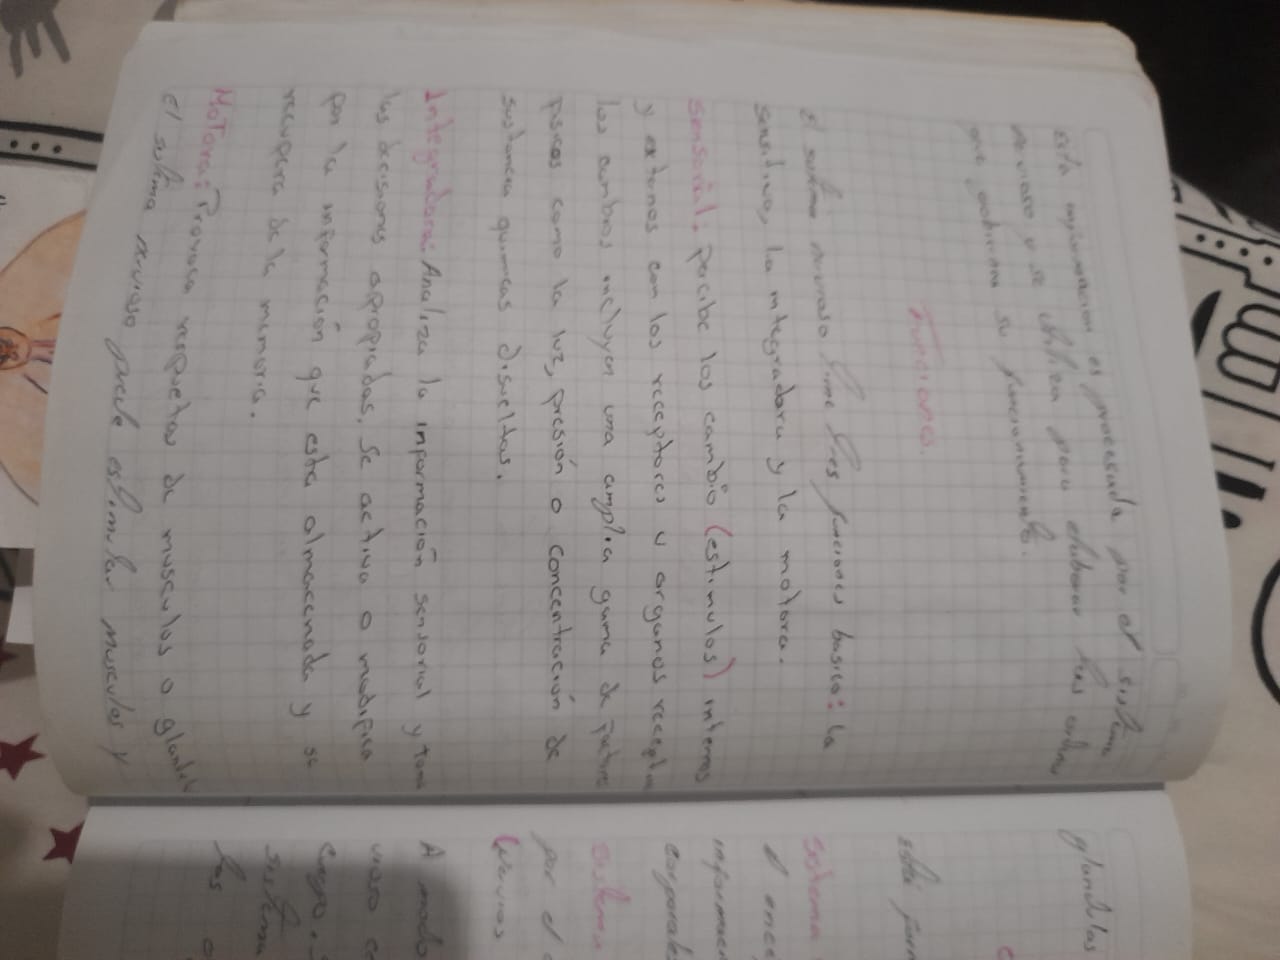 Esta información es procesada por el sistema
nervioso y se utiliza para elaborar las
que gobierna su funcionamiento.
Funciones.
El sistema nervioso tiene tres funciones basica: la
sensitiva, la integradora y la motora.
Sensorial. percibe los cambio (estimulos) internos
y externos con los receptores u organos receptor
los cambios incluyen una amplia gama de factores
fisicos como la luz, presión o concentración de
sustancia quimicas disueltas.
Integradora: Analiza la información sensorial y toma
las decisiones apropiadas. Se activa o modifica
por la información que esta almacenada y se
recupera de la memoria.
Motora: Provoca respuetas de musculos o glandula
el sistema nervioso puede estimular musculos y
glandulas
está
sistema
el
corporales
sistema
por el
(nervios
A modo
sistema
las